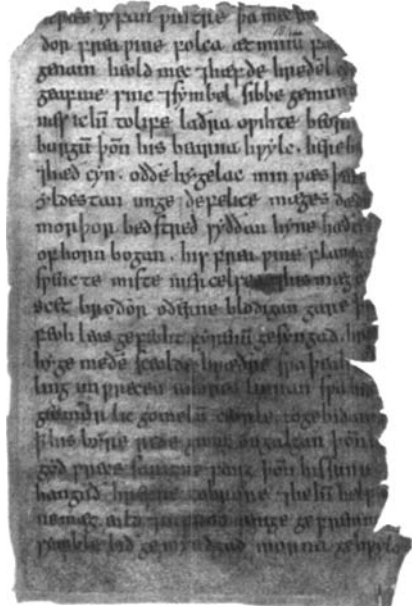 ic wæs syfan wintre þa mec sin
dor frea wine folca æt minū fæ
genam heold mec ⁊ hæfde hreðel
geaf me sinc ⁊ symbel sibbe gemun
næs ic hī to life laðra owihte beorn
burgū þoñ his bearna hwylc. here
⁊ hæð cyn. oððe hygelac min wæs þā
yldestan unge defelice mæges dæd
morþor bed stred syððan hyne hæð
of horn bogan. his frea wine flane
swencte miste mercelses ⁊ his mæg o
scet broðor oðerne blodigan gare þ
feoh leas gefeoht fyrenū gesyngad. hre
hyge meðe sceolde hwæðre swa þeah
ling unwrecen ealdres linnan swa bið
geomor lic gomelū ceorle to gebidan
ꝥ his byre ride giong on galgan þoñ
gyd wrece sarigne sang þoñ his sunu
hangað hrefne to hroðre ⁊ he hī helpe
ne mæg eald ⁊ in frod ænige ge fremm
symble bið ge myndgad morna gehwylc